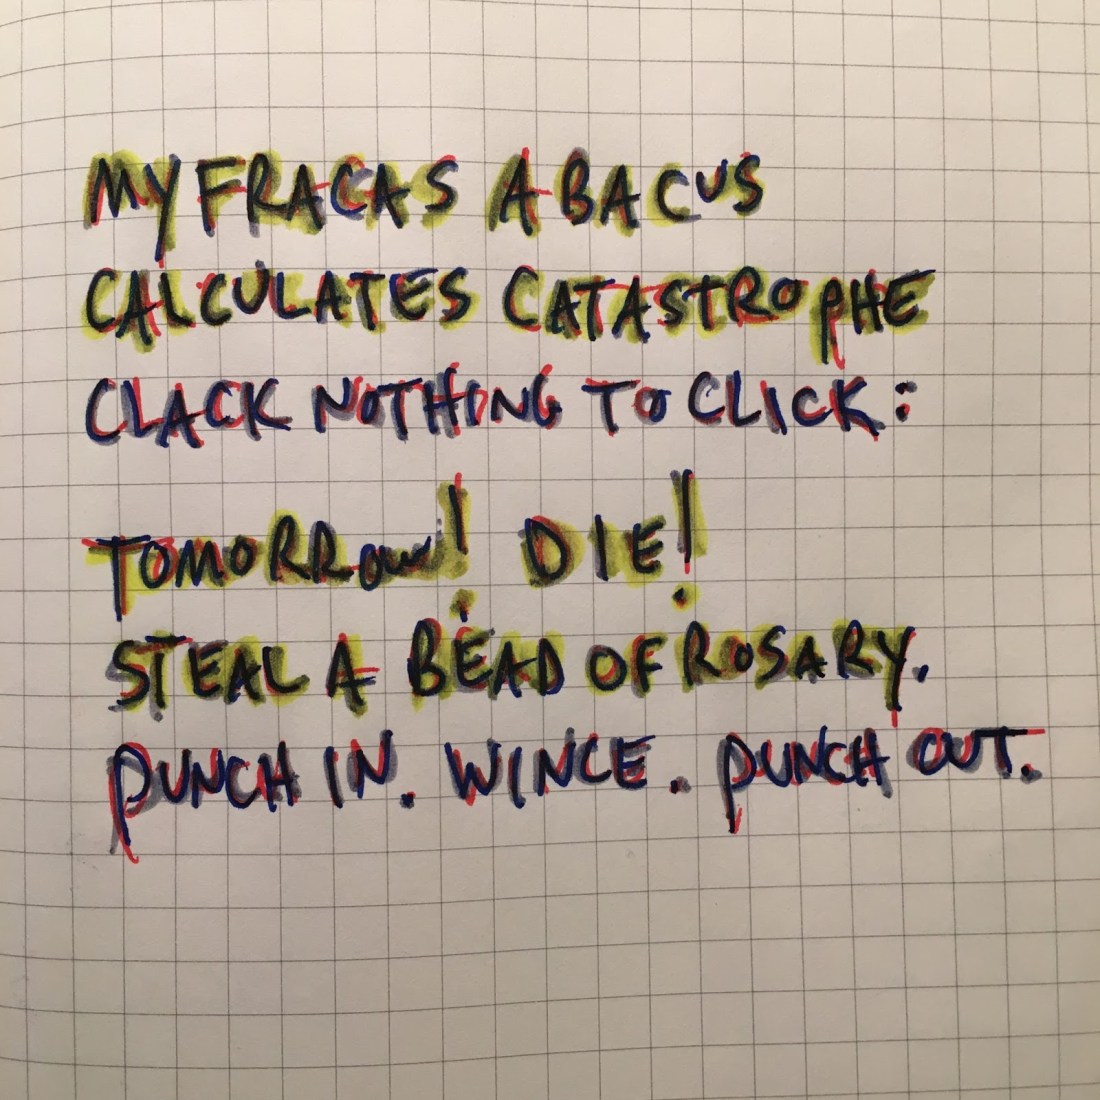 MY FRACAS ABACUS
CALCULATES CATASTROPHE
CLACK NOTHING TO CLICK:
TOMORROW! DIE!
STEAL A BEAD OF ROSARY.
PUNCH IN. WINCE. PUNCH OUT.